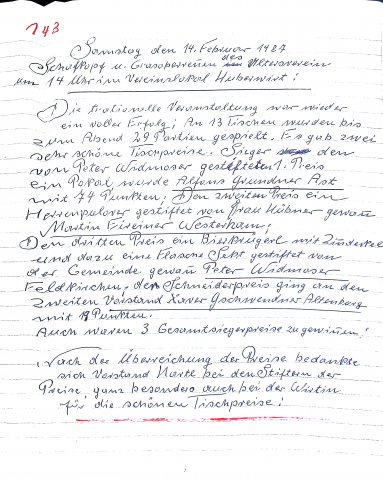 143
Samstag den 14. Februar 1987
Schafkopf u. Grasoberrennen des Altersverein
um 14 Uhr im Vereinslokal Huberwirt!
Die traditionelle Veranstaltung war wieder
ein voller Erfolg; An 13 Tischen wurden bis
zum Abend 29 Partien gespielt. Es gab zwei
sehr schöne Tischpreise. Sieger den
von Peter Widmoser gestifteten 1. Preis
ein Pokal wurde Alfons Grundner Ast
mit 74 Punkten; Den zweiten Preis ein
Herrenpulover gestiftet von Frau Hübner gewann
Martin Eireiner Westerham;
Den dritten Preis ein Bierkrügerl mit Zinndeckel
und dazu eine Flasche Sekt gestiftet von
der Gemeinde gewann Peter Widmoser
Feldkirchen, der Schneiderpreis ging an den
zweiten Vorstand Xaver Gschwendner Altenburg
mit Punkten.
Auch waren 3 Gesamtsiegerpreise zu gewinnen!
Nach der Überreichung der Preise bedankte
sich Vorstand Harte bei den Stiftern der
Preise, ganz besonders auch bei der Wirtin
für die schönen Tischpreise!